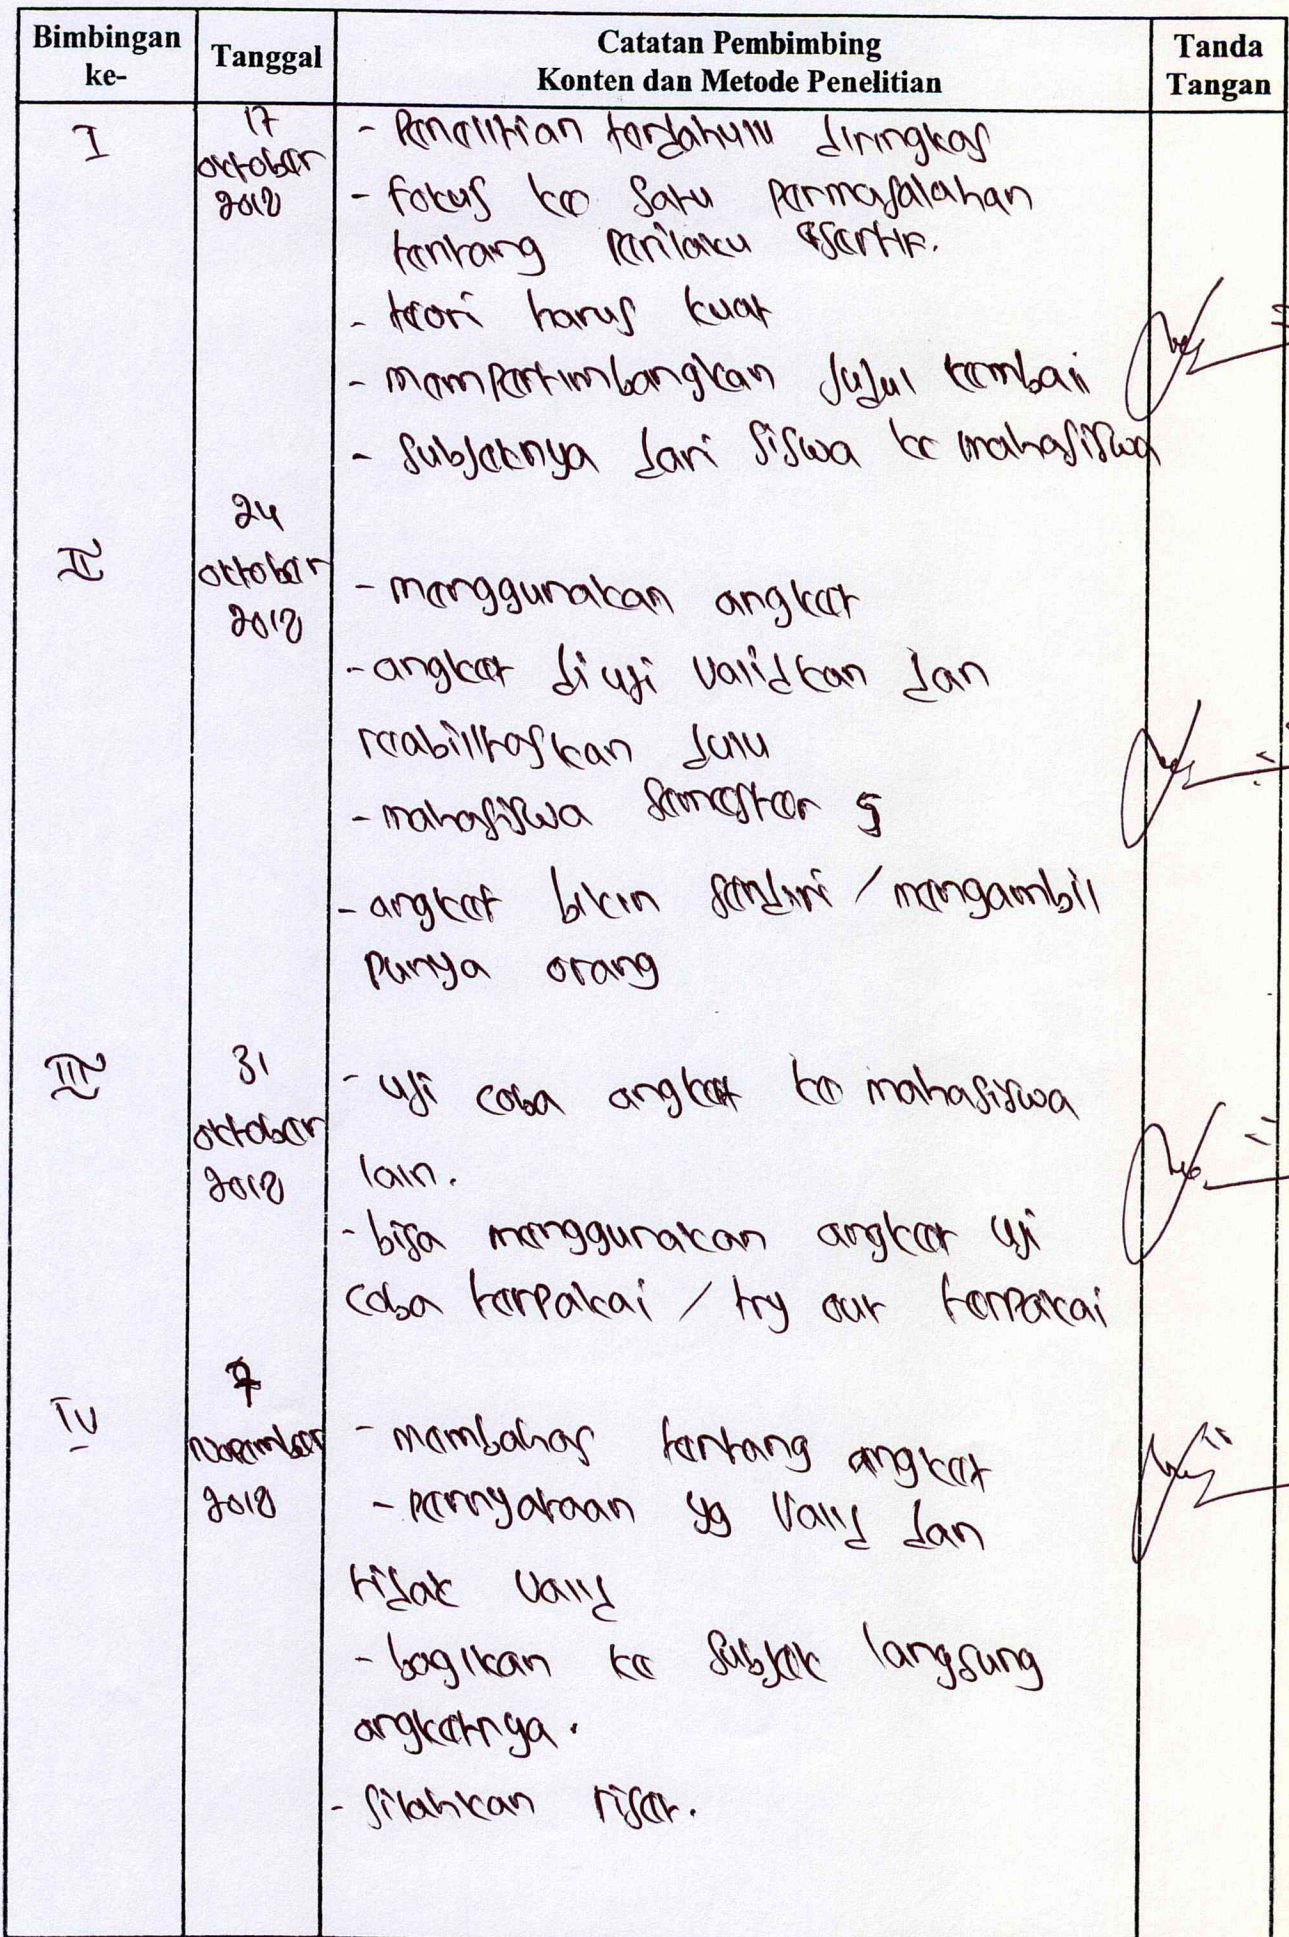 Bimbingan ke-
Tanggal
Catatan Pembimbing
Konten dan Metode Penelitian
Tanda Tangan
I
17
oktober
2018
- Penelitian terdahulu diringkas
- fokus ke satu permasalahan
tentang perilaku asertif.
- teori harus kuat
- mempertimbangkan judul kembali
- subjeknya dari siswa ke mahasiswa
II
24
oktober
2018
- menggunakan angket
- angket di uji validkan dan
reabilitaskan dulu
- mahasiswa semester 5
- angket bikin sendiri / mengambil
punya orang
III
31
oktober
2018
- uji coba angket ke mahasiswa
lain.
- bisa menggunakan angket uji
coba terpakai / try out terpakai
IV
7
november
2018
- membahas tentang angket
- pernyataan yg valid dan
tidak valid
- bagikan ke subjek langsung
angketnya.
- silahkan riset.